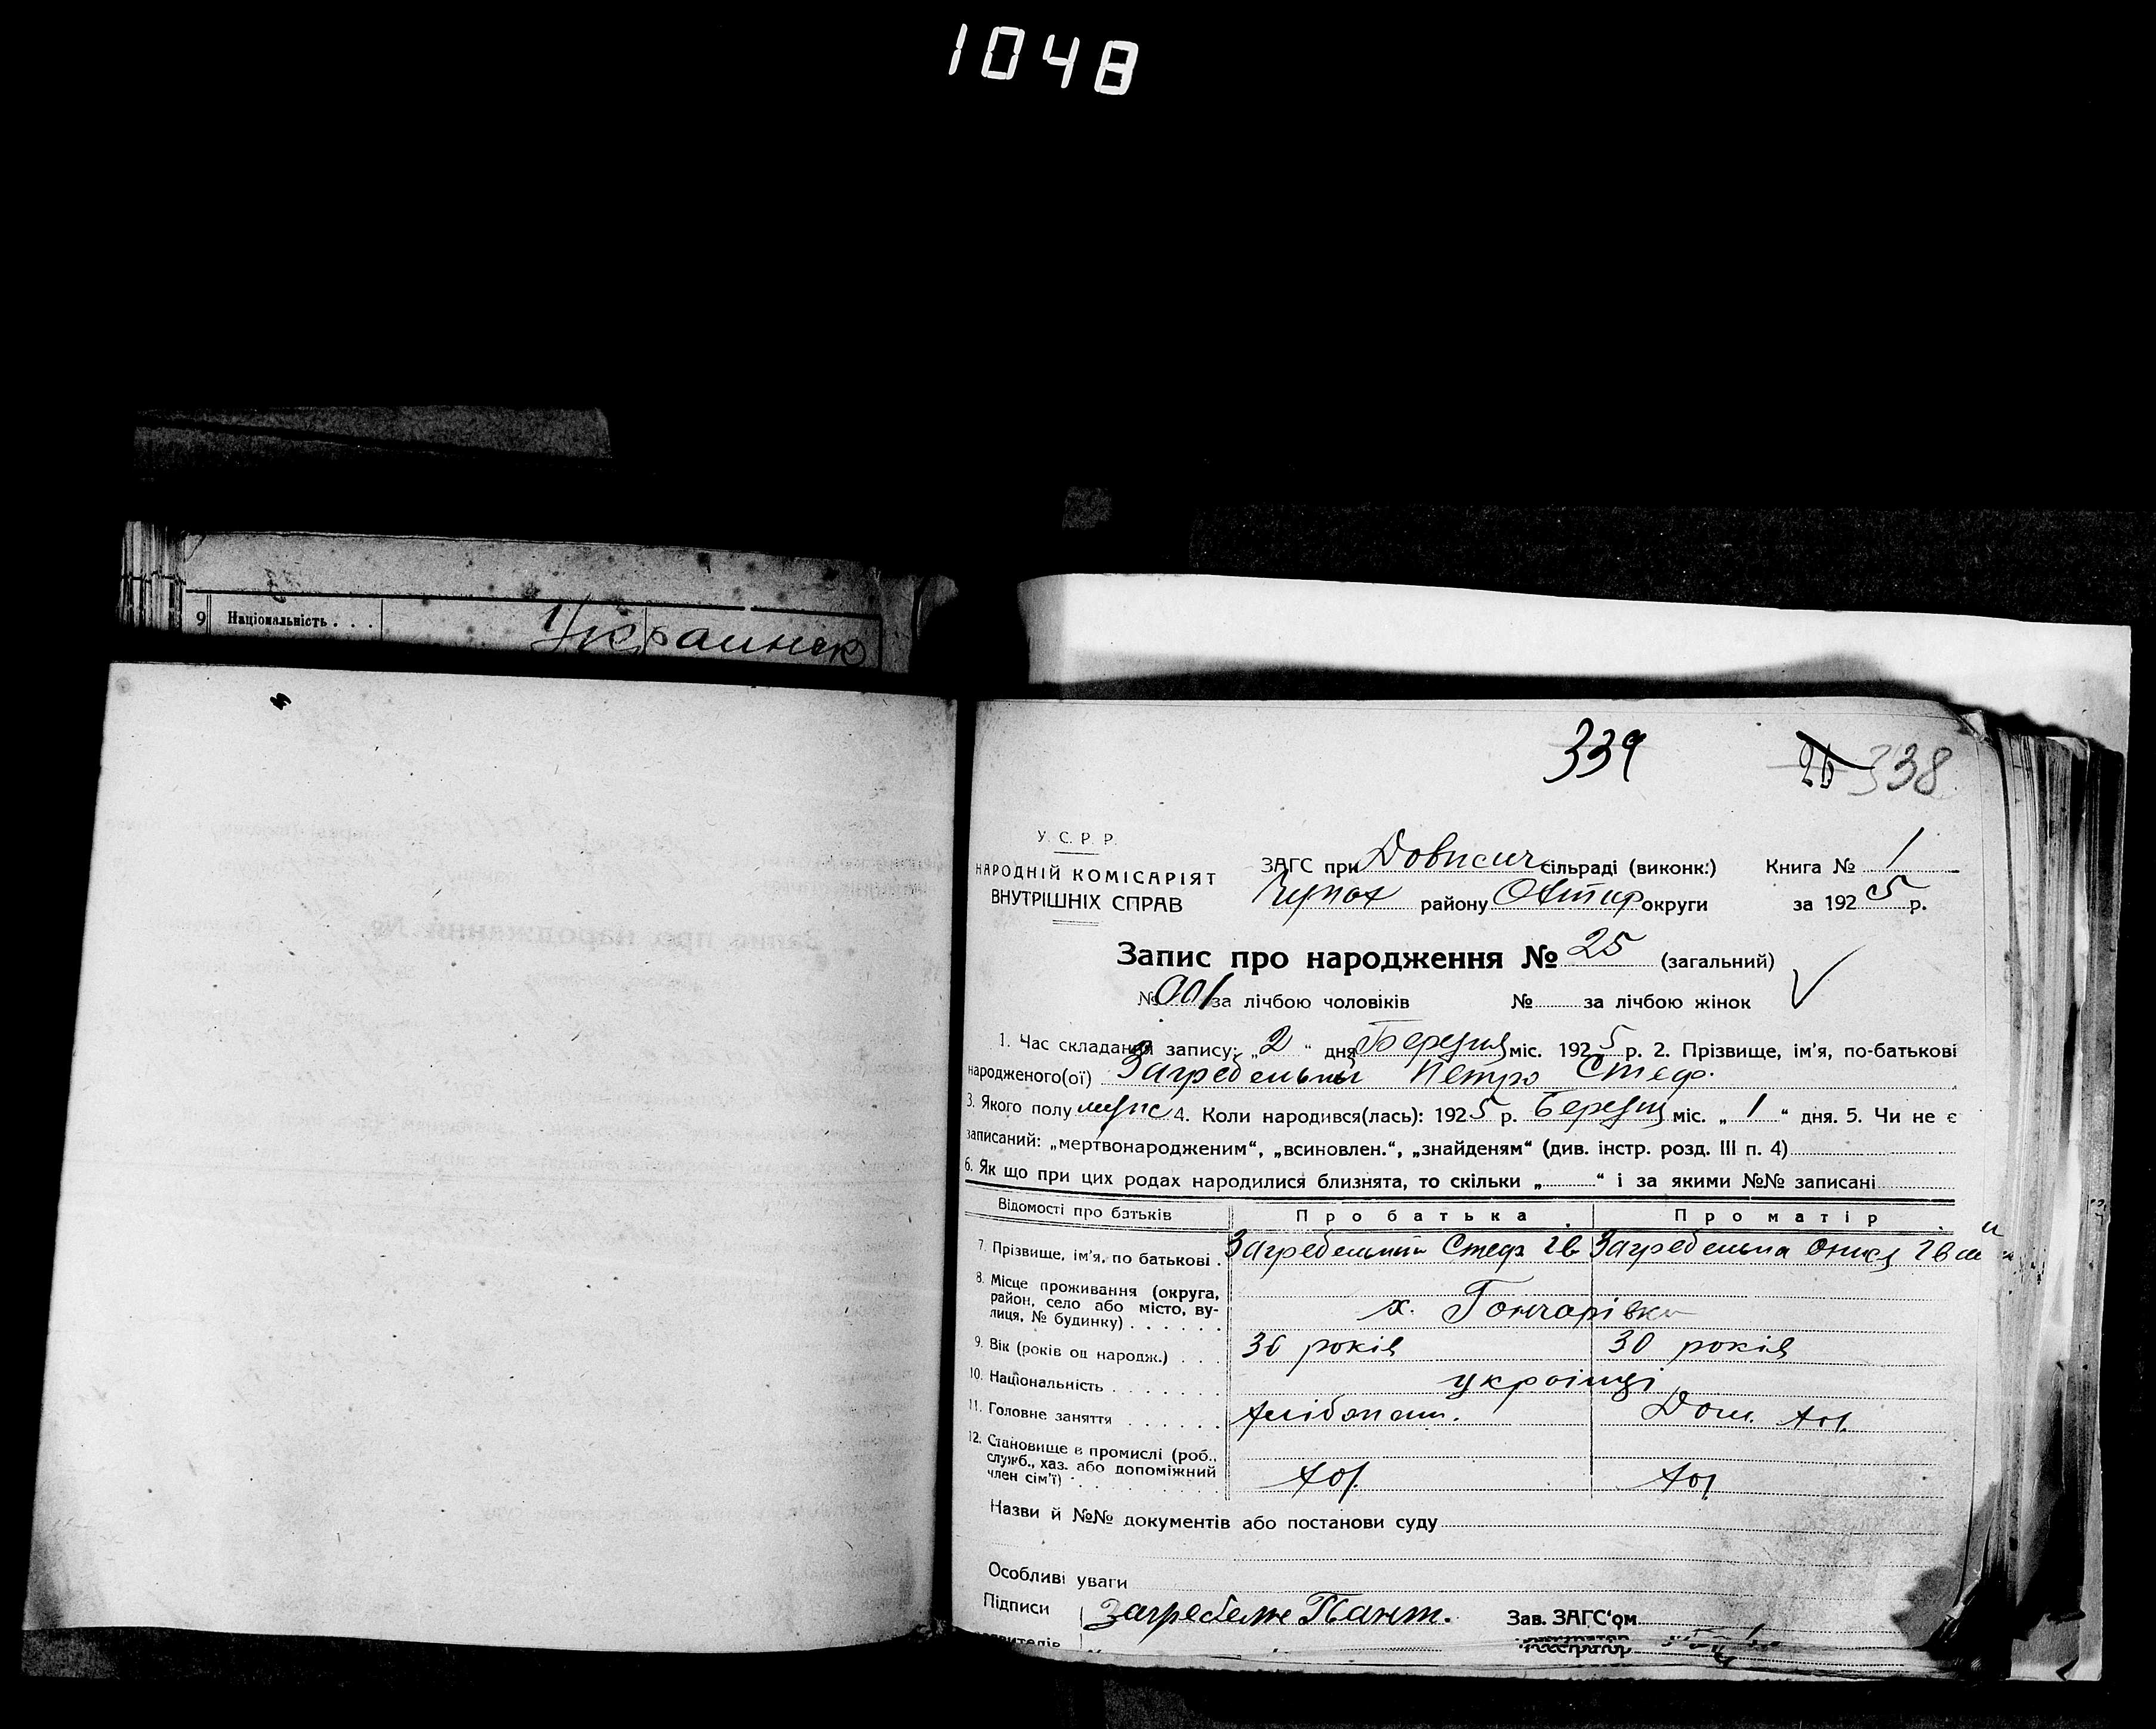 1048
9 Національність . . . Украинск
339 26 338
У. С. Р. Р.
НАРОДНІЙ КОМІСАРІЯТ
ВНУТРІШНІХ СПРАВ
ЗАГС при Довжич сільраді (виконк.) Книга № 1
району Охтир округи за 1925 р.
Запис про народження № 25 (загальний)
№ за лічбою чоловіків № за лічбою жінок
1. Час складання запису: „2“ дня Березня міс. 1925 р. 2. Прізвище, ім'я, по-батькові
народженого(ої) Загребельный Петро Стеф.
3. Якого полу муж 4. Коли народився(лась): 1925 р. Березня міс. „1“ дня. 5. Чи не є
записаний: „мертвонародженим“, „всиновлен.“, „знайденям“ (див. інстр. розд. III п. 4)
6. Як що при цих родах народилися близнята, то скільки „ “ і за якими №№ записані
Відомості про батьків Про батька Про матір
7. Прізвище, ім'я, по батькові . Загребельний Стеф Ів Загребельна
8. Місце проживання (округа,
район, село або місто, ву-
лиця, № будинку) . . . . . . х. Гончарівка
9. Вік (років од народж.) . . . 36 років 30 років
10. Національність . . . . . . . українці
11. Головне заняття . . . . . . хлібопаш. Дом. хоз.
12. Становище в промислі (роб.,
служб., хаз. або допоміжний
член сім'ї) . . . . . . . . . хоз. хоз
Назви й №№ документів або постанови суду
Особливі уваги
Підписи Загребельн Зав. ЗАГС'ом